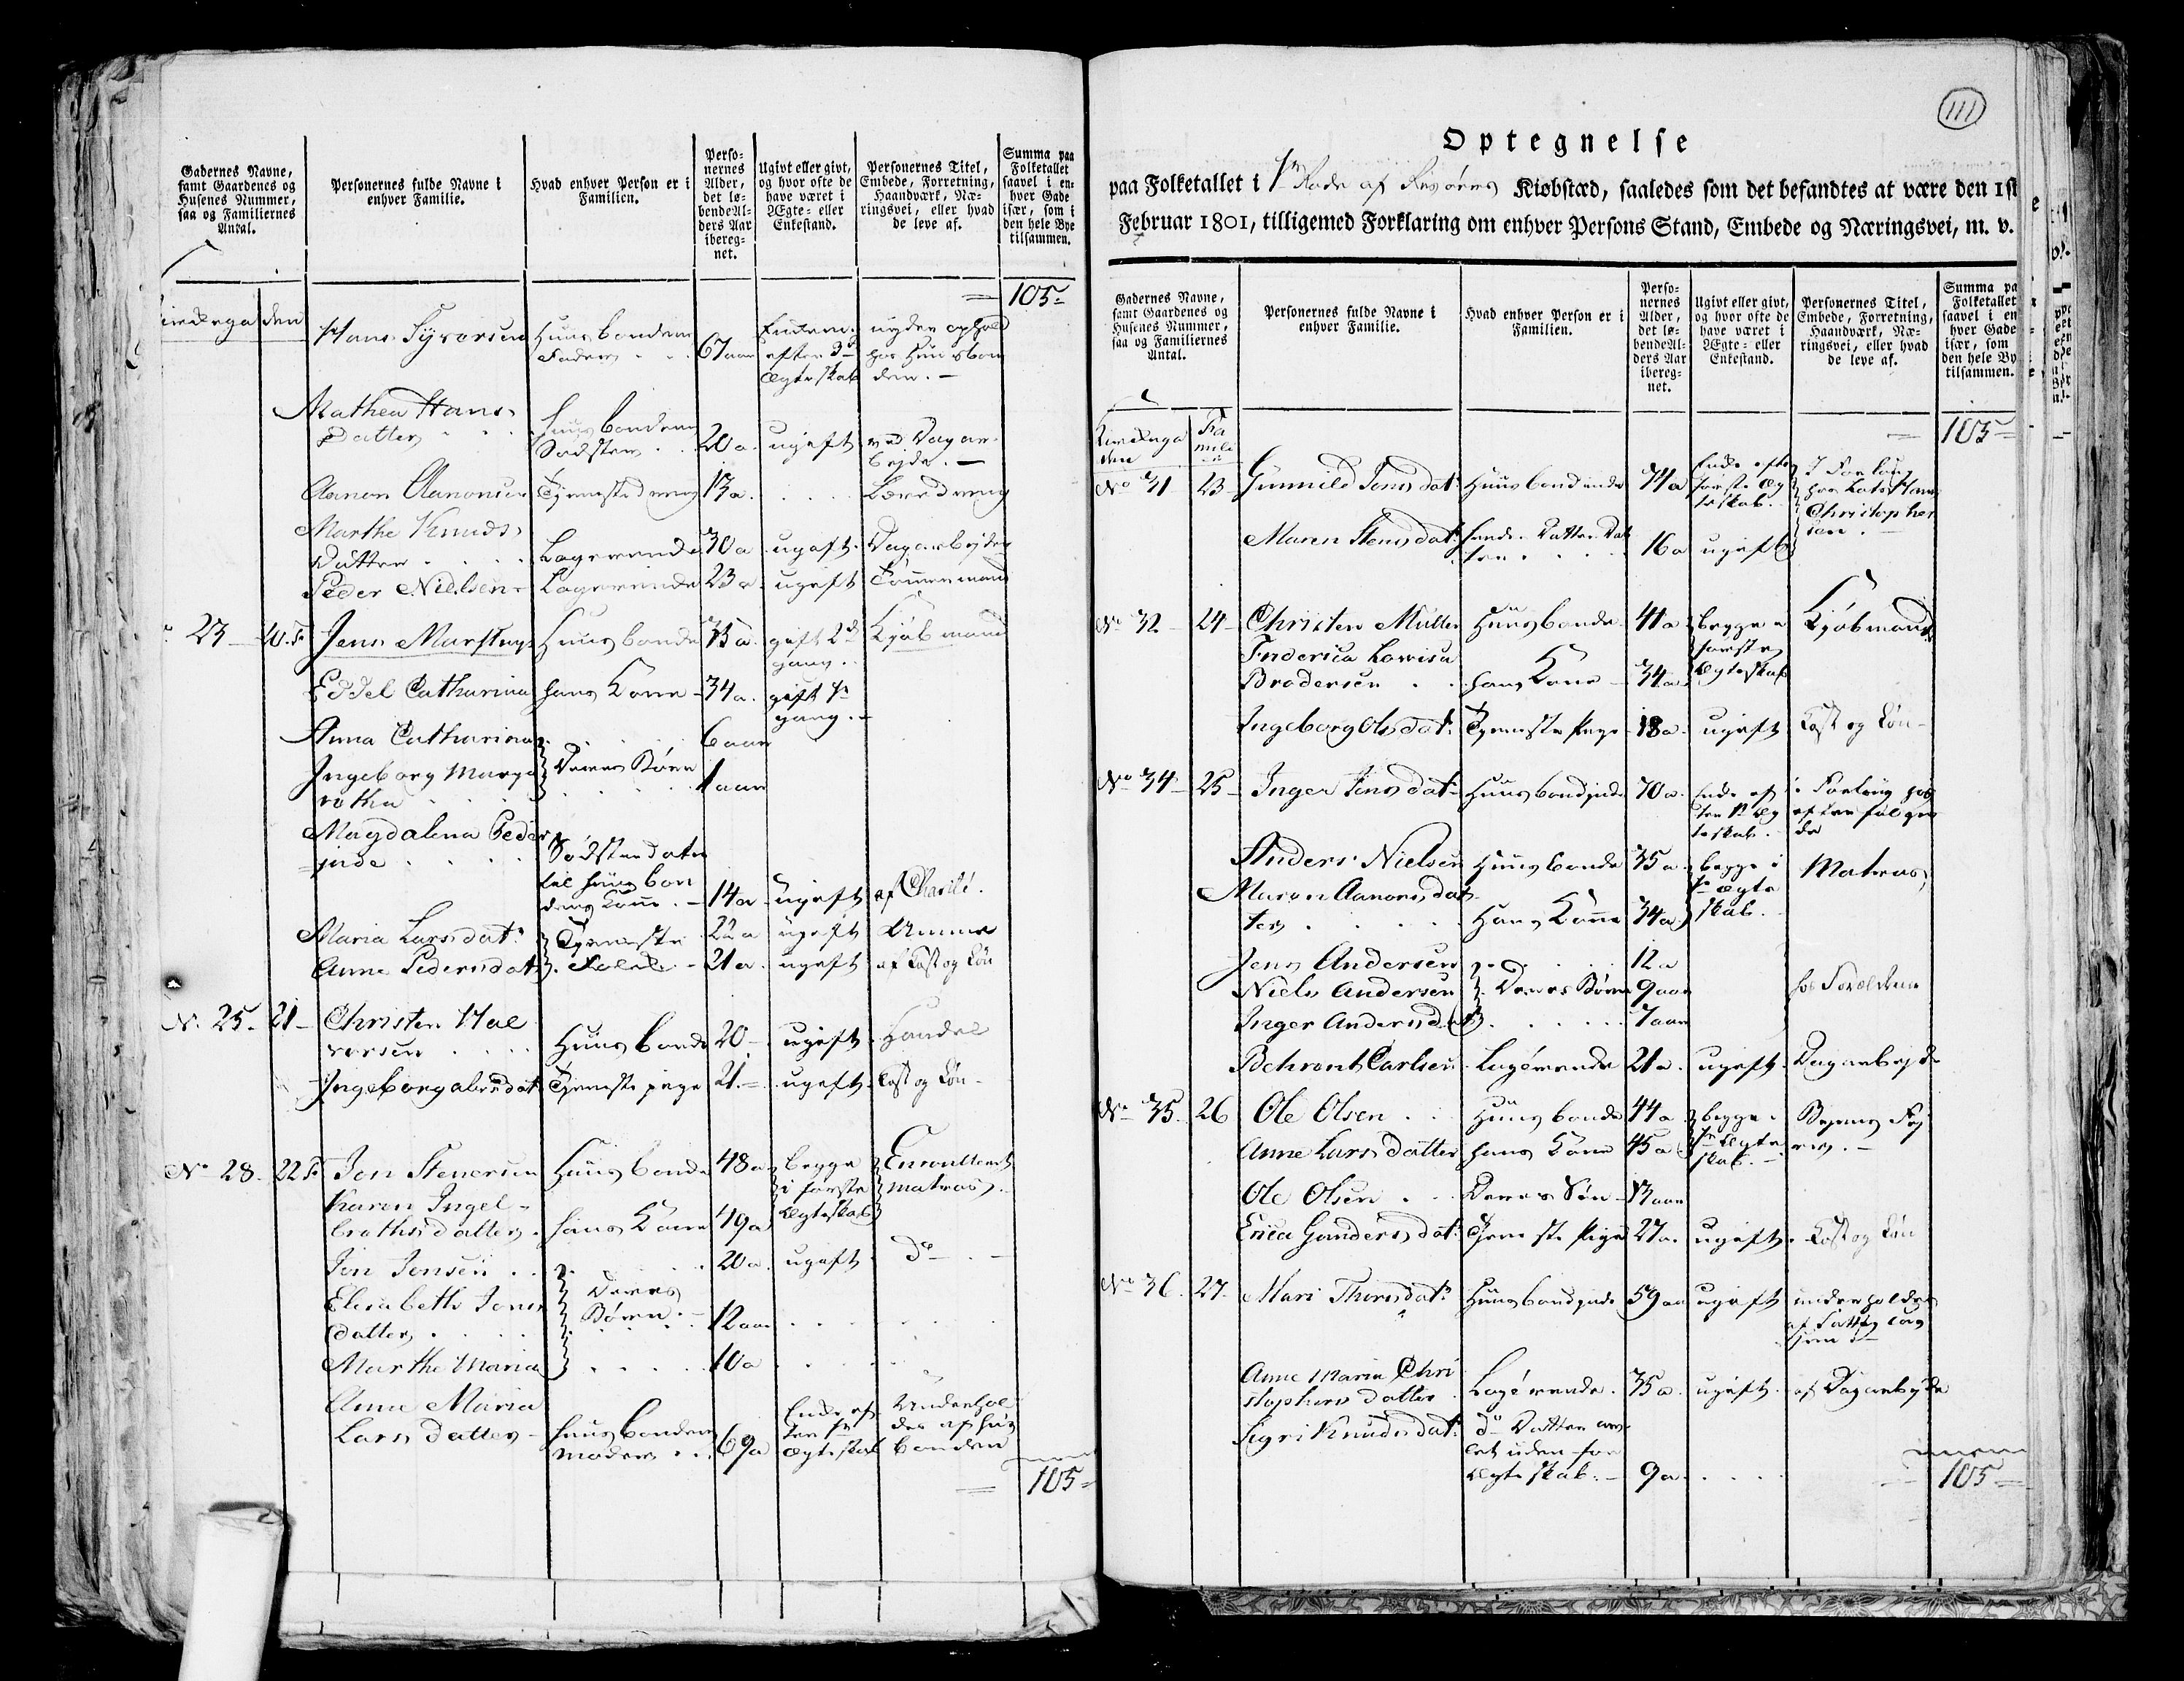 Gadernes Navne,
samt Gaardenes og
Husenes Nummer,
saa og Familiernes
Antal.
Personernes fulde Navne i
enhver Familie.
Hvad enhver Person er i
Familien.
Perso-
nernes
Alder,
det lø-
bende Al-
ders Aar
ibereg-
net.
Ugivt eller givt,
og hvor ofte de
have været i
Ægte- eller
Enkestand.
Personernes Titel,
Embede, Forretning,
Haandværk, Næ-
ringsvei, eller hvad
de leve af.
Summa paa
Folketallet
saavel i en-
hver Gade
især, som i
den hele Bye
tilsammen.
105
Hans Huusbondens
Fader 67 aar efter 3de Ægteskab nyder ophold hos Huusbon
den.
Mathea Hans
Datter Huusbondens
Sødster 20 a. ugift ved Dagar-
bejde.
Aanon Aanonsen Tjenestedreng 13 a. Læredreng
Marthe Knuds
Datter Logerende 30 a ugift Dagarbejder
Peder Nielsen Logerende 23 a. ugift Tømmermand
23 20. F Jens Marstrup Huusbonde 33 a. gift 2d Kjøbmand
gang.
Eddel Catharina hans Kone 34 a. gift 1te
gang.
Anna Catharina 6 aar
Ingeborg Marga Deres Børn 1 aar
retha
Magdalena Peder
Sødsterdatter
til huusbon
dens Kone 14 a ugift af
Maria Larsdatr Tjeneste 22 a ugift Amme
Anne Pedersdatr Folk 21 a. ugift af Kost og Løn
No 25. 21 Christen Hal
vorsen Huusbonde 20 ugift Handel
Ingeborg dat Tjenestepige 21. ugift Kost og Løn
No 28. 22 F Jon Stenersen Huusbonde 48 a begge Enroulleret
i første matros.
Karen Ingel-
brethsdatter hans Kone 49 a Ægteskab
Jon Jonsen 20 a. ugift do
Elisabeth Jons Deres
datter Børn 12 aar
Marthe Maria 10 a
Anne Maria
Lars Datter Huusbondens
moder 69 a Enke ef
ter 1te
Ægteskab Underhol
des af huus
bonden
105
111
Optegnelse
paa Folketallet i 1te Rode af Risøers Kiøbstæd, saaledes som det befandtes at være den 1st
Februar 1801, tilligemed Forklaring om enhver Persons Stand, Embede og Næringsvei, m. v.
Gadernes Navne,
samt Gaardenes og
Husenes Nummer,
saa og Familiernes
Antal.
Personernes fulde Navne i
enhver Familie.
Hvad enhver Person er i
Familien.
Perso-
nernes
Alder,
det lø-
bende Al-
ders Aar
ibereg-
net.
Ugivt eller givt,
og hvor ofte de
have været i
Ægte- eller
Enkestand.
Personernes Titel,
Embede, Forretning,
Haandværk, Næ-
ringsvei, eller hvad
de leve af.
Summa pa
Folketallet
saavel i en
hver Gade
især, som
den hele By
tilsammen.
Fa
milie
105
No 31 23 Gunnild Jensdat. Huusbondinde 74 a Enke efter
første Æg
teskab. I Forlaug
hos Lods Hans
Christopher
sen.
Maren Stensdat. hendes Datter Dat
ter 16 a ugift
No 32 24 Christen Müller Huusbonde 41 a begge i Kjøbmand
Frederica Lovisa første
Brodersen hans Kone 34 a. Ægteskab
Ingeborg Olsdat. Tjeneste Pige 18 a. ugift Kost og Løn
No 34 25 Inger Jensdat. Huusbondinde 70 a. Enke ef
ter 1te Æg
teskab. i Forlaug hos
efterfølgen
de
Anders Nielsen Huusbonde 35 a. begge i Matros
Maren Aanonsdat 1te Ægte
ter Hans Kone 34 a. skab.
Jens Andersen 12 a
Niels Andersen Deres Børn 9 aar hos Forældrene
Inger Andersdat 7 aar
Behrent Carlsen Logerende 21 a. ugift Dagarbejde
No 35. 26 Ole Olsen Huusbonde 44 a begge i
1te Ægte
skab. Byens
Anne Lars Datter hans Kone 45 a
Ole Olsen Deres Søn 13 aar
Erica Gundersdat. Tjeneste Pige 27 a. ugift Kost og Løn
No 36. 27. Mari Thorsdatr Huusbondinde 59 aar ugift underholdes
af Fattig
Anne Maria Chri
stophers datter Logerende 35 a. ugift af Dagarbejde
Sigri Knudsdat. do Datter
let uden for
Ægteskab. 9 a.
105